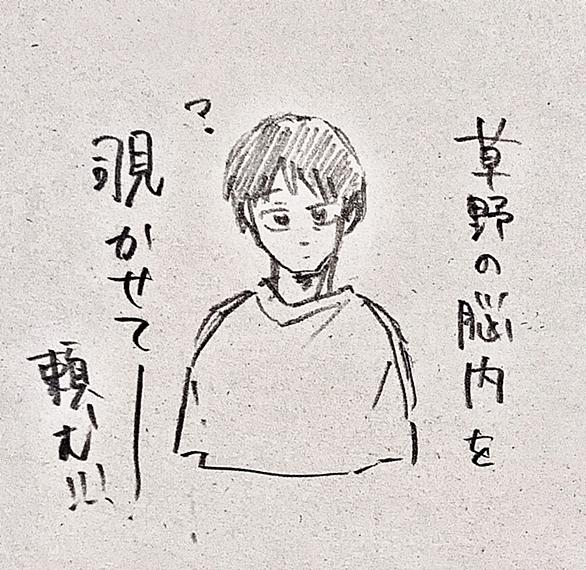 草野の脳内を
?
覗かせてー
頼む!!!